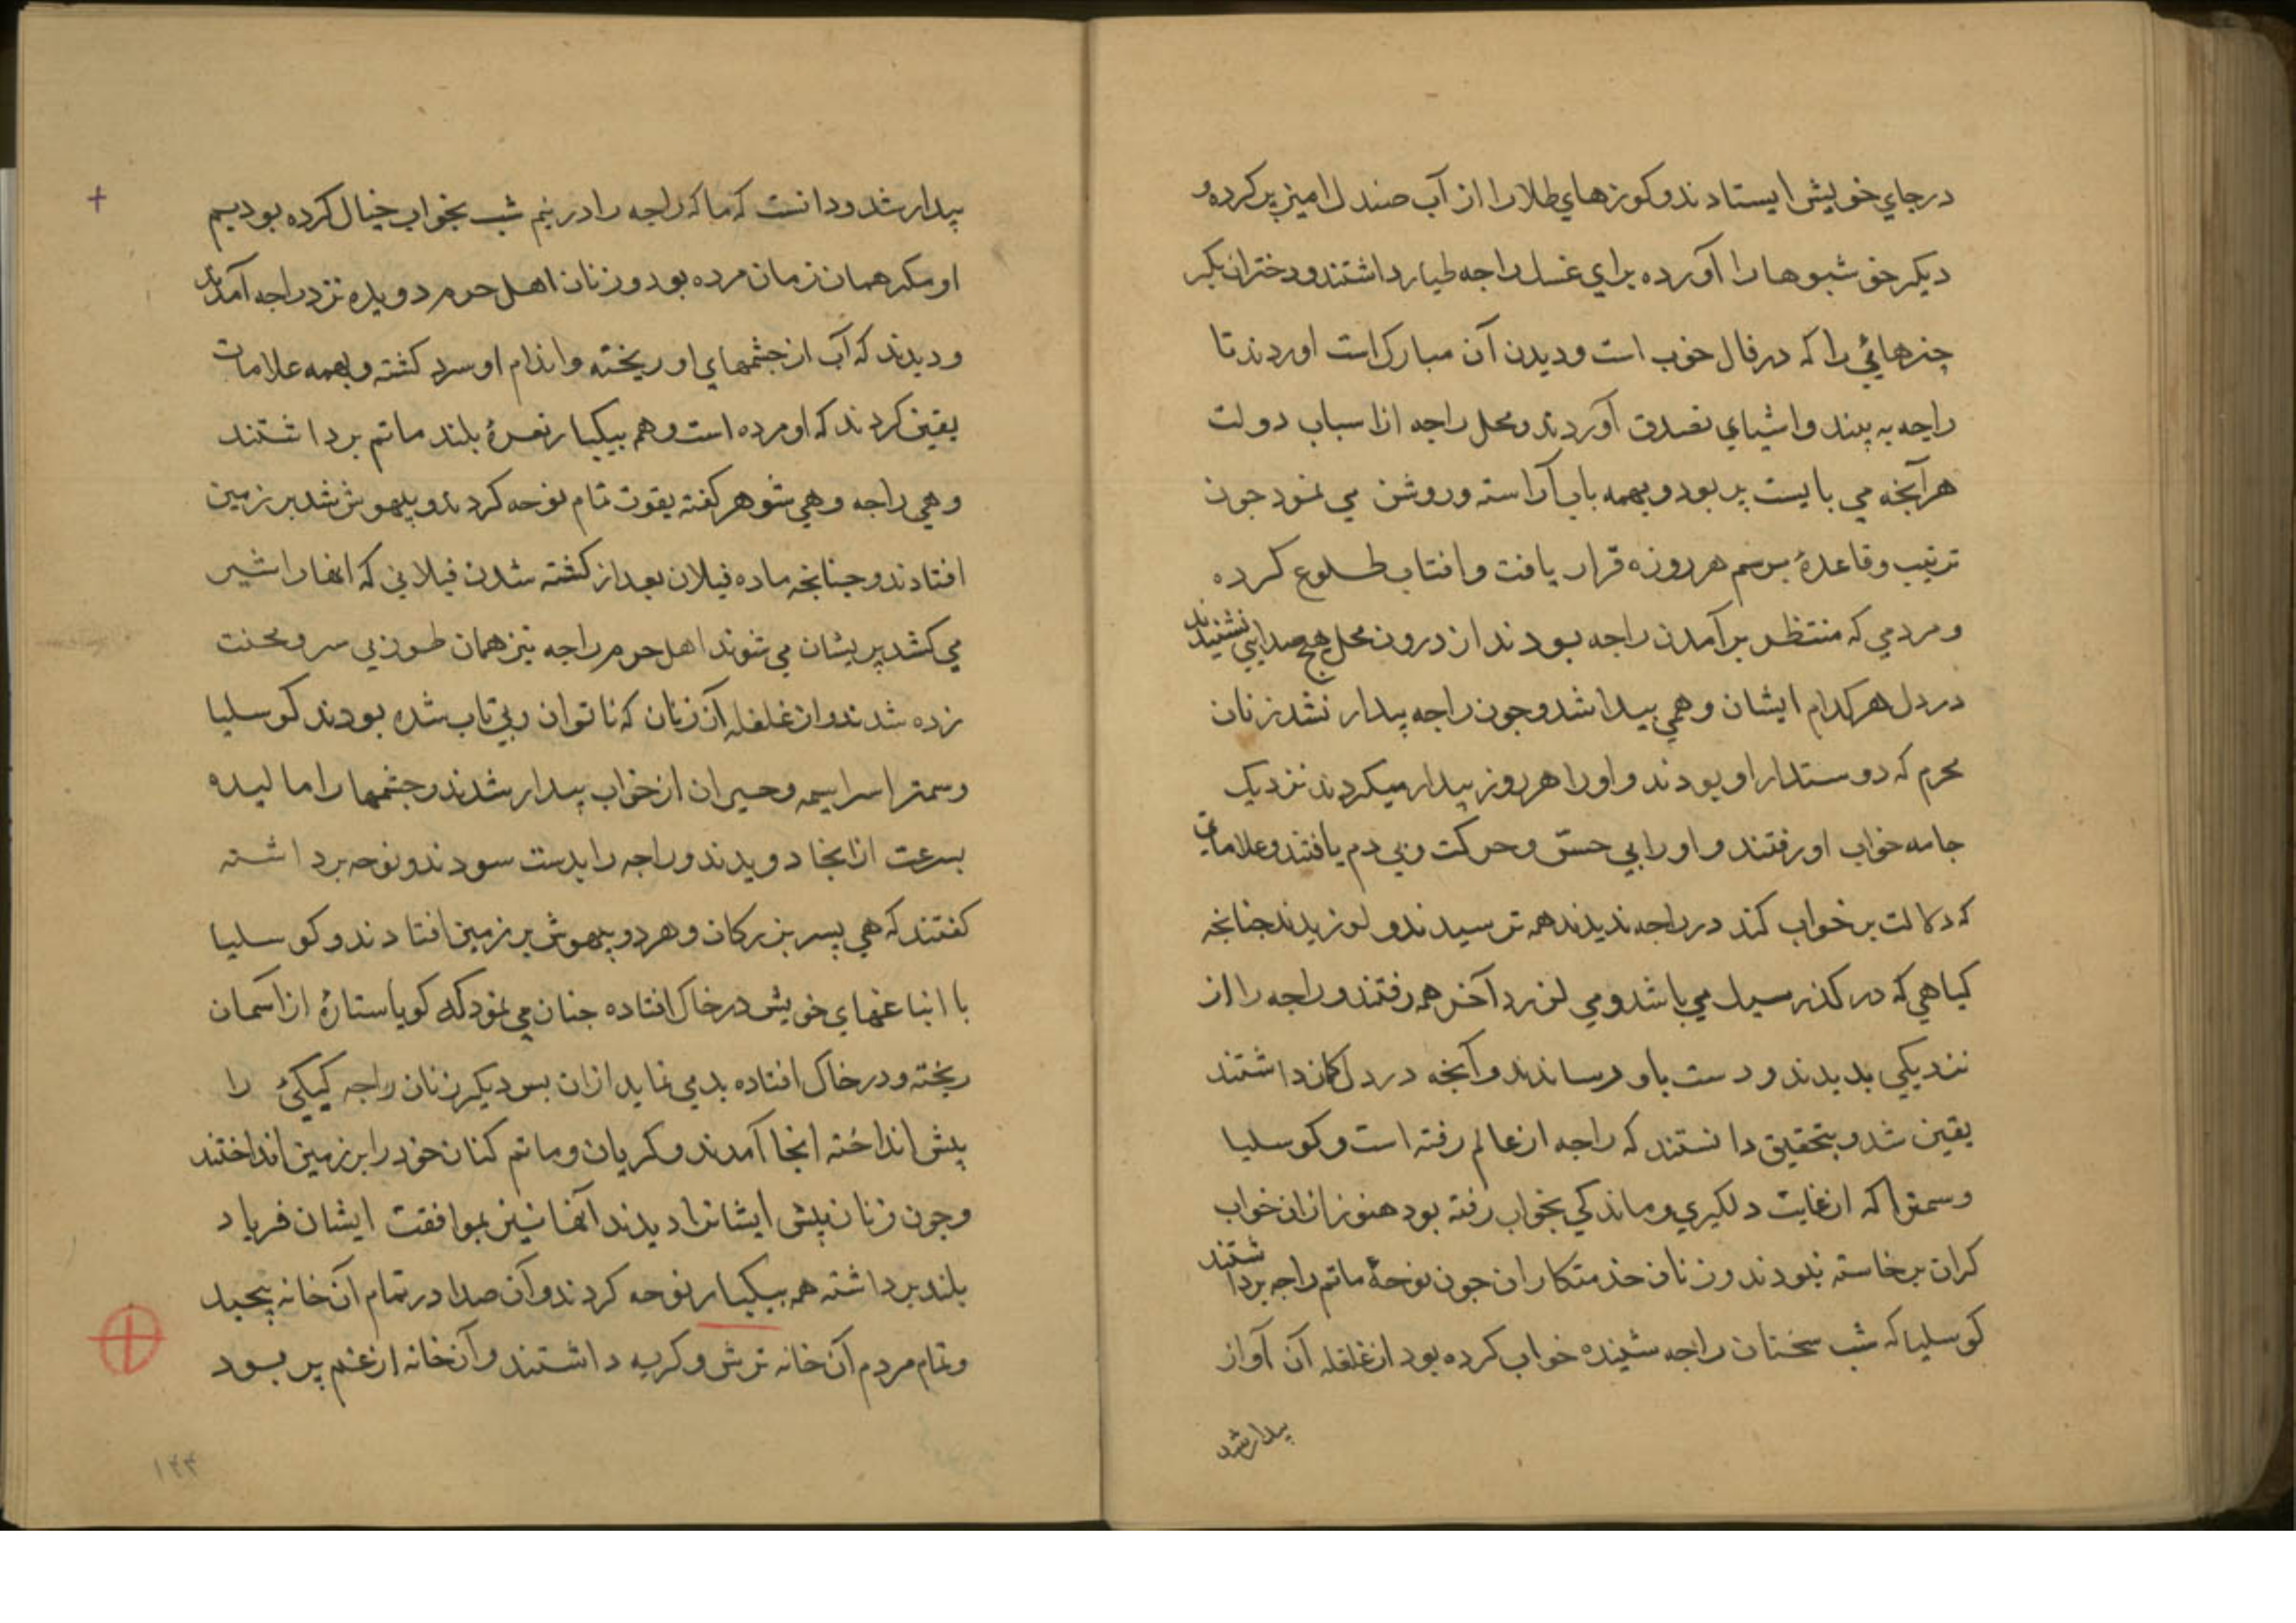 درجاي خويش ايستادند و كوزهاي طلا را از آب صندل اميز پر كرده و
ديكر خوشبوها را آورده براي غسل راجه طيار داشتند و دختران بكر
چنرهائي را كه در فال خوب است و ديدن آن مبارك است اوردند تا
راجه به بيند و اشياي تصدق آوردند و محل راجه از اسباب دولت
هرآنچه مي بايست پر بود و بهمه باب آراسته و روشن مي نمود جون
ترتيب و قاعدهٔ برسم هر روزه قرار يافت و افتاب طلوع كرده
و مردمي كه منتظر برآمدن راجه بودند از درون محل هيچ صدايي نشنيدند
در دل هر كدام ايشان وهمي پيدا شد و جون راجه بيدار نشد زنان
محرم كه دوستدار او بودند و او را هر روز بيدار ميكردند نزديك
جامه خواب او رفتند و او را بي حسّ و حركت و بي دم يافتند و علامات
كه دلالت بر خواب كند در راجه نديدند همه ترسيدند و لرزيدند جنانجه
كياهي كه در كذر سيل مي باشد و مي لرزد آخر همه رفتند و راجه را از
نزديكي بديدند و دست باو رساندند و آنجه در دل كمان داشتند
يقين شد و بتحقيق دانستند كه راجه از عالم رفته است و كوسليا
و سمترا كه از غايت دلكيري و ماندكي بخواب رفته بود هنوز از ان خواب
كران برخاسته نبودند و زنان خدمتكاران جون نوحهٔ ماتم راجه برداشتند
كوسليا كه شب سخنان راجه شنيده خواب كرده بود از غلغله آن آواز
بيدار شد
بيدار شد و دانست كه ما كه راجه را در نيم شب بخواب خيال كرده بوديم
او مكر همان زمان مرده بود و زنان اهل حرم دويده نزد راجه آمدند
و ديدند كه آب از جشمهاي او ريخته و اندام او سرد كشته و بهمه علامات
يقين كردند كه او مرده است و همه بيكبار نعرهٔ بلند ماتم برداشتند
و هي راجه و هي شوهر كفته بقوت تمام نوحه كردند و بيهوش شد بر زمين
افتادند و جنانجه ماده فيلان بعد از كشته شدن فيلاني كه انها را شير
مي كشد پريشان مي شوند اهل حرم راجه نيز همان طور بي سر و محنت
زده شدند و از غلغله آن زنان كه ناتوان و بي تاب شده بودند كوسليا
و سمترا سراسيمه و حيران از خواب بيدار شدند و جشمها را ماليده
بسرعت از انجا دويدند و راجه را بدست سودند و نوحه برداشته
كفتند كه هي پسر بزركان و هر دو بيهوش بر زمين افتادند و كوسليا
با انباغهاي خويش در خاك افتاده جنان مي نمود كه كويا ستارهٔ از اسمان
ريخته و در خاك افتاده بد مي نمايد از ان پس ديكر زنان راجه كيكئي را
پيش انداخته انجا آمدند و كريان و ماتم كنان خود را بر زمين انداختند
و جون زنان پيش ايشانرا ديدند آنها نيز بموافقت ايشان فرياد
بلند برداشته همه بيكبار نوحه كردند و آن صدا در تمام آن خانه پيچيد
و تمام مردم آن خانه ترش و كريه داشتند و آن خانه از غم پر بود